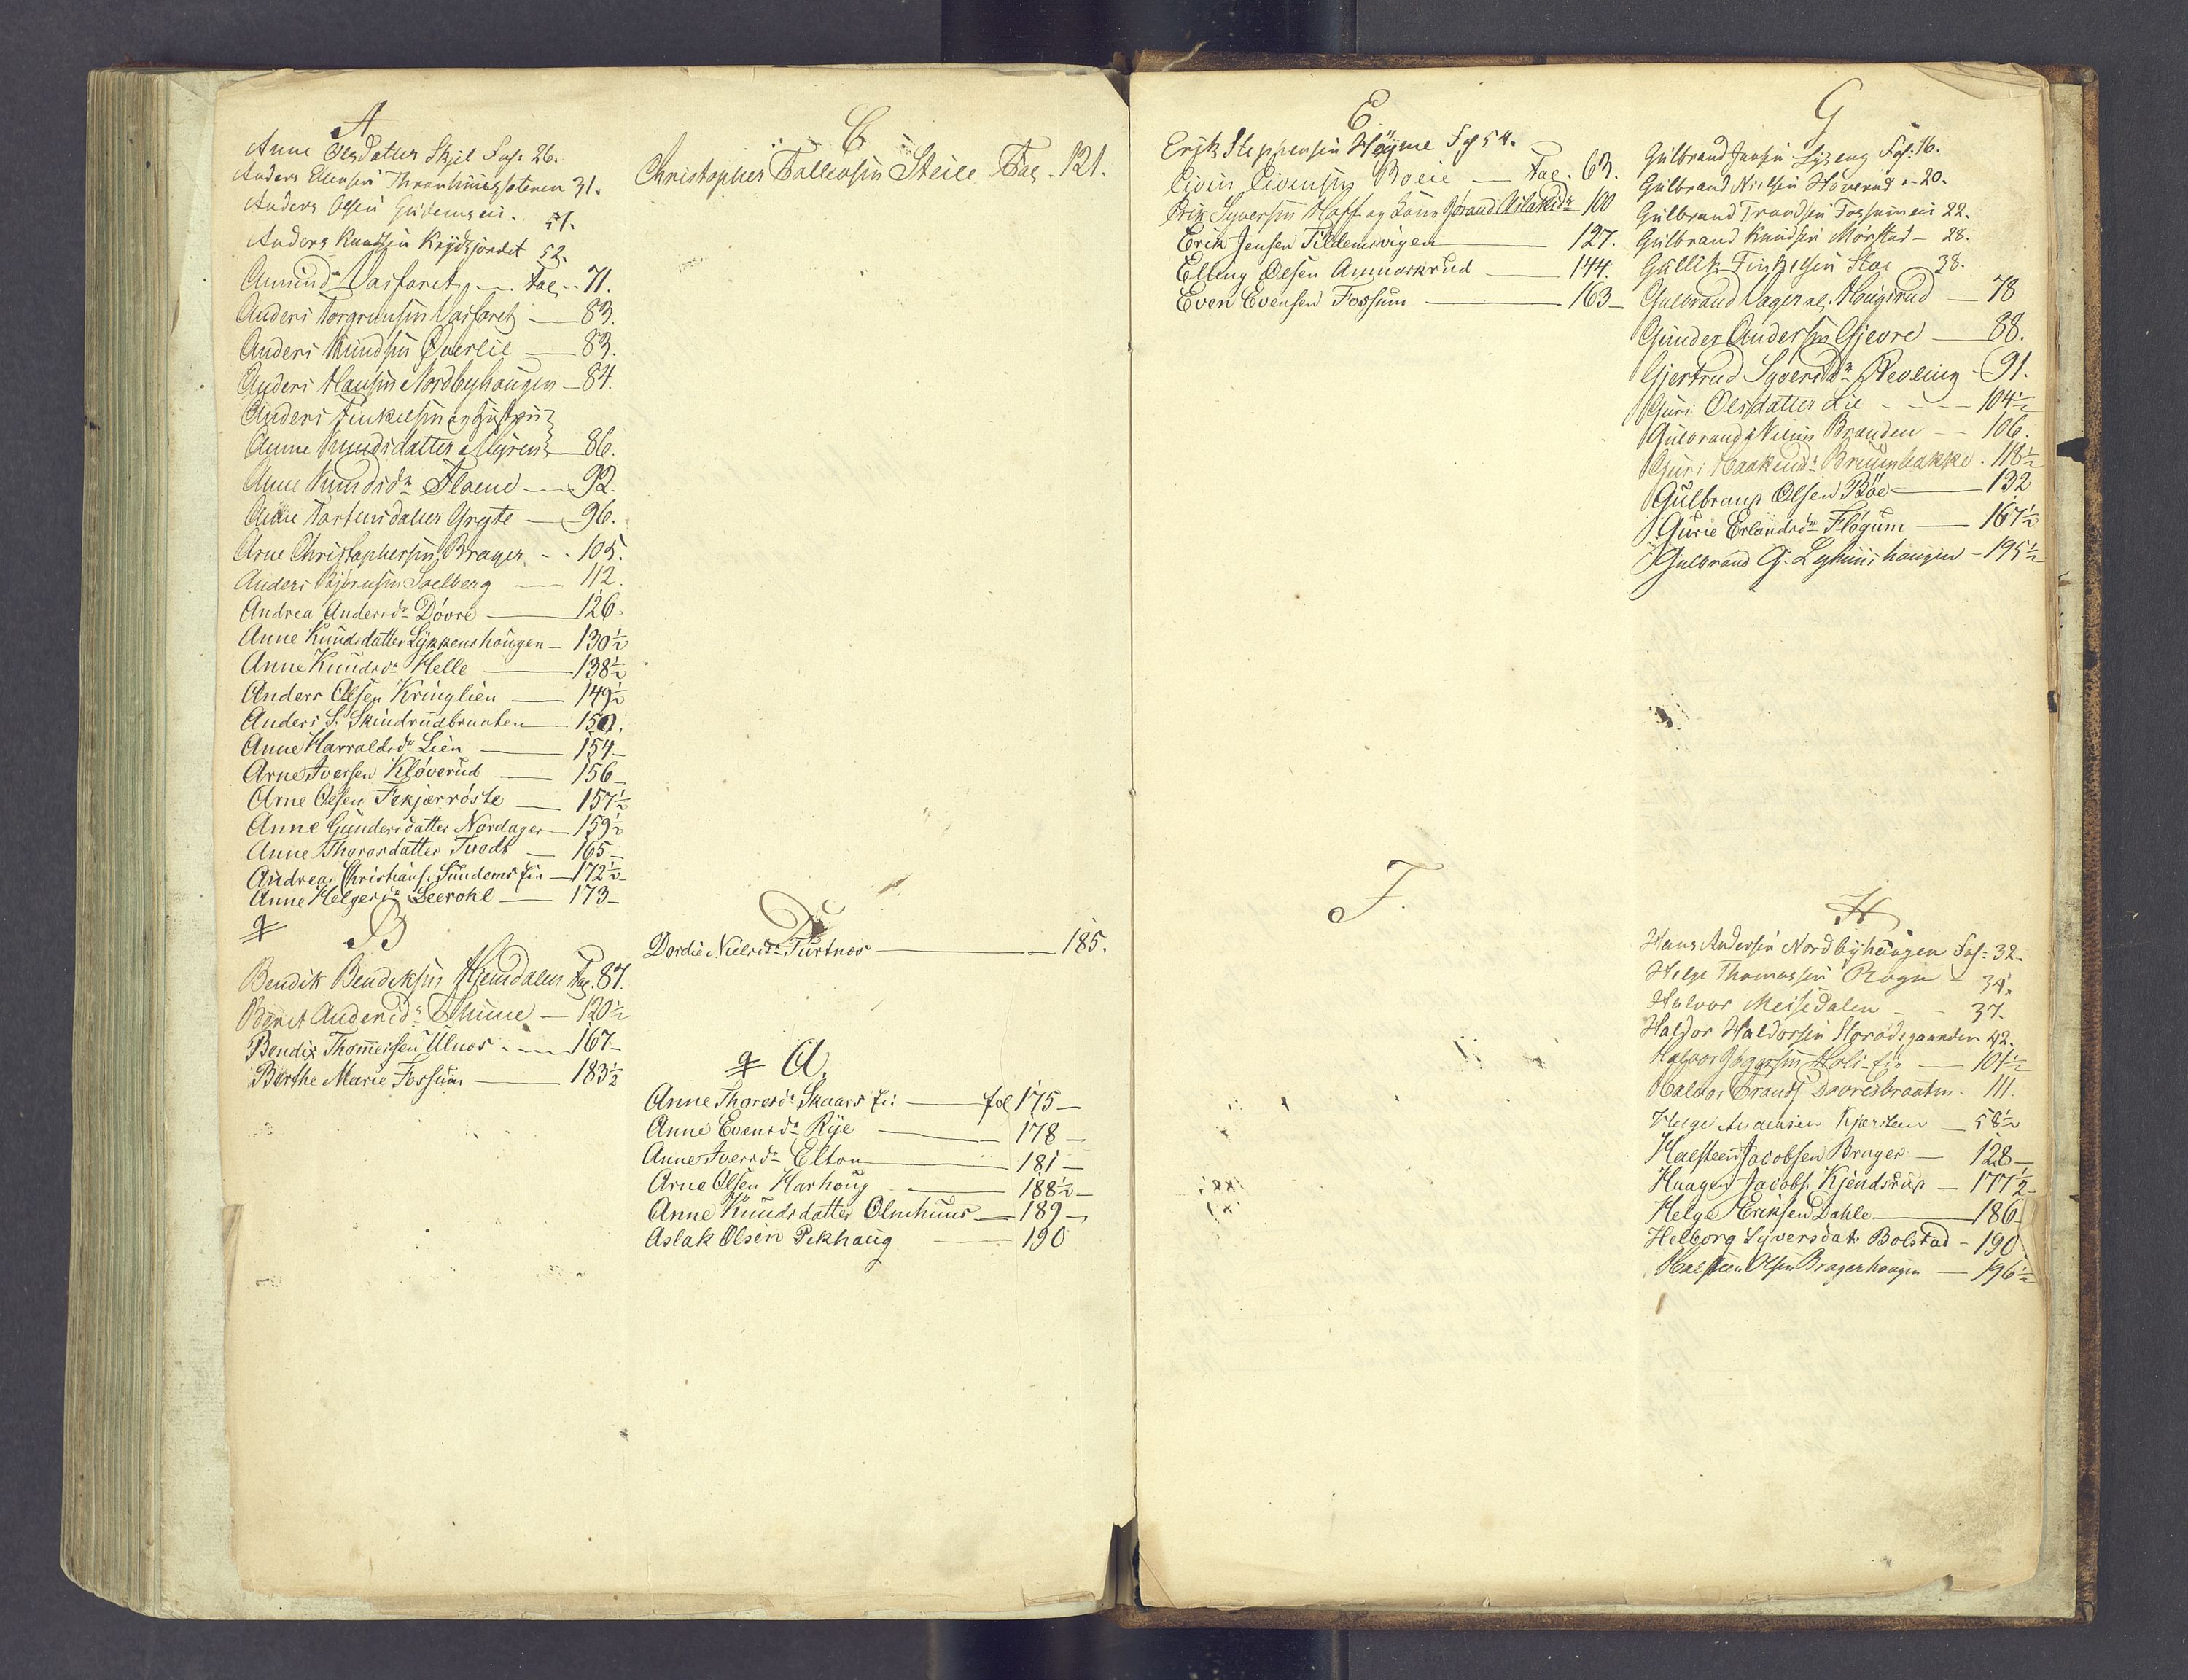 A
Anne Olsdatter Skjel Fol: 26.
Anders Ellensen 31.
Anders Olsen 51.
Anders Knudsen 52.
Amund Vasfaret Fol. 71.
Anders Torgrimsen Vasfaret — 83.
Anders Knudsen Øverlie — 83.
Anders Hansen Nordbyhaugen — 84.
Anders Finkelsen og Hustru
Anne Knudsdatter Myren — 86.
Anne Knudsdr Flaene — 92.
Anne Torstensdatter Gryte — 96.
Arne Christophersen Brager. - - 105.
Anders Bjørnsen Selberg — 112.
Andrea Andersdr Dövre — 126.
Anne Knudsdatter Lykkenshougen — 130½
Anne Knudsdr Helle — 138½
Anders Olsen Kringlien — 149½
Anders S. Skindrudbraaten — 150.
Anne Harraldsdr Lien — 154 —
Arne Iversen Klöverud — 156 —
Arne Olsen Fekjærröste — 157½
Anne Gundersdatter Nordager — 159½
Anne Thorosdatter Tvedt — 165 —
Andreas Christians. Sundems Ei: — 172½ —
Anne Helgesdr Leerohl — 173 —
B
Bendik Bendiksen Hjemdalen Fol. 87.
Berit Andersdr Thune — 120½
Bendix Thomessen Ulnæs — 167 —
Berthe Marie Fossum — 183½
C
Christopher Tollefsen Steile Fol. 121.
D
Dordie Nielsdr Turtnæs — 185.
A.
Anne Thoresdr Skaars Ei: — fol 175 —
Anne Evensdr Rye — 178 —
Anne Iversdr Elton — 181 —
Arne Olsen Harhoug — 188½ —
Anne Knudsdatter Olmhuus — 189 —
Aslak Olsen Pekhaug — 190
E
Erik Steffensen Høyme Fol 54.
Eivin Eivensen Boeie — Fol. 63.
Erik Syversen Hoff og Kone Jørand Aslaksdr 100
Erik Jensen Tildemsvigen — 127.
Elling Olsen Aamoskrud — 144.
Even Evensen Fossum — 163 —
F.
G
Gulbrand Jensen Fol: 16.
Gulbrand Nielsen Hoverud - 20.
Gulbrand Trondsen Fossumeie 22.
Gulbrand Knudsen Mørstad — 28.
Gullik Finkelsen 38.
Gulbrand Hougsrud — 78
Gunder Andersen Gjevre — 88.
Gjertrud Syversdr Revling - 91.
Guri Olsdatter Lie - - - - 104½
Gulbrand Nielsen Branden - - 106.
Guri Haakensdr Bruunbakke. 118½
Gulbrand Olsen Böe — 132
Gurie Erlandsdr Flögum — 167½
Gulbrand G. Lykkenshaugen — 195½
H
Hans Andersen Nordbyhaugen Fol: 32.
Helge Thomassen Rogn - 34.
Halvor Meisdalen - - 37.
Haldor Haldorsen Storødegaarden 42.
Halvor 101½
Halvor Tronds. Dovresbraaten. 111.
Helge Andersen — 58½
Halsteen Jacobsen Brager — 128 —
Haagen Jacobs. Kjendsrud — 177½ —
Helge Eriksen Dahle — 186
Helborg Syversdat. Bolstad — 190
Halsteen Olsen Bragerhaugen — 196½